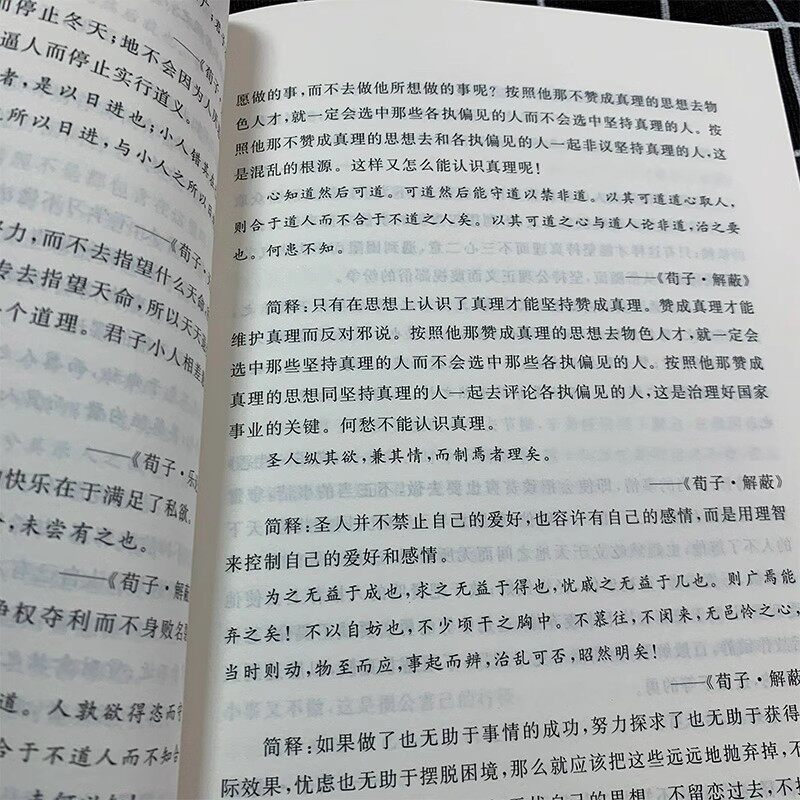 而停止冬天；地不会因为人
逼人而停止实行道义。
——《荀子·
者，是以日进也；小人错其
之所以日进，与小人之所以日
——《荀子·
努力，而不去指望什么天命
去指望天命，所以天天
个道理。君子小人相差
——《荀子·乐
的快乐在于满足了私欲。
，未尝有之也。
——《荀子·解蔽
争权夺利而不身败名
道。人孰欲得恣而守
合于不道人而不知合
愿做的事，而不去做他所想做的事呢？按照他那不赞成真理的思想去物
色人才，就一定会选中那些各执偏见的人而不会选中坚持真理的人。按
照他那不赞成真理的思想去和各执偏见的人一起非议坚持真理的人，这
是混乱的根源。这样又怎么能认识真理呢！
心知道然后可道。可道然后能守道以禁非道。以其可道道心取人，
则合于道人而不合于不道之人矣。以其可道之心与道人论非道，治之要
也。何患不知。
——《荀子·解蔽》
简释：只有在思想上认识了真理才能坚持赞成真理。赞成真理才能
维护真理而反对邪说。按照他那赞成真理的思想去物色人才，就一定会
选中那些坚持真理的人而不会选中那些各执偏见的人。按照他那赞成
真理的思想同坚持真理的人一起去评论各执偏见的人，这是治理好国家
事业的关键。何愁不能认识真理。
圣人纵其欲，兼其情，而制焉者理矣。
——《荀子·解蔽》
简释：圣人并不禁止自己的爱好，也容许有自己的感情，而是用理智
来控制自己的爱好和感情。
为之无益于成也，求之无益于得也，忧戚之无益于几也。则广焉能
弃之矣！不以自妨也，不少顷干之胸中。不慕往，不闵来，无邑怜之心，
当时则动，物至而应，事起而辨，治乱可否，昭然明矣！
——《荀子·解蔽
简释：如果做了也无助于事情的成功，努力探求了也无助于获得
际效果，忧虑也无助于摆脱困境，那么就应该把这些远远地抛弃掉，不
自己的思想，不留恋过去，不